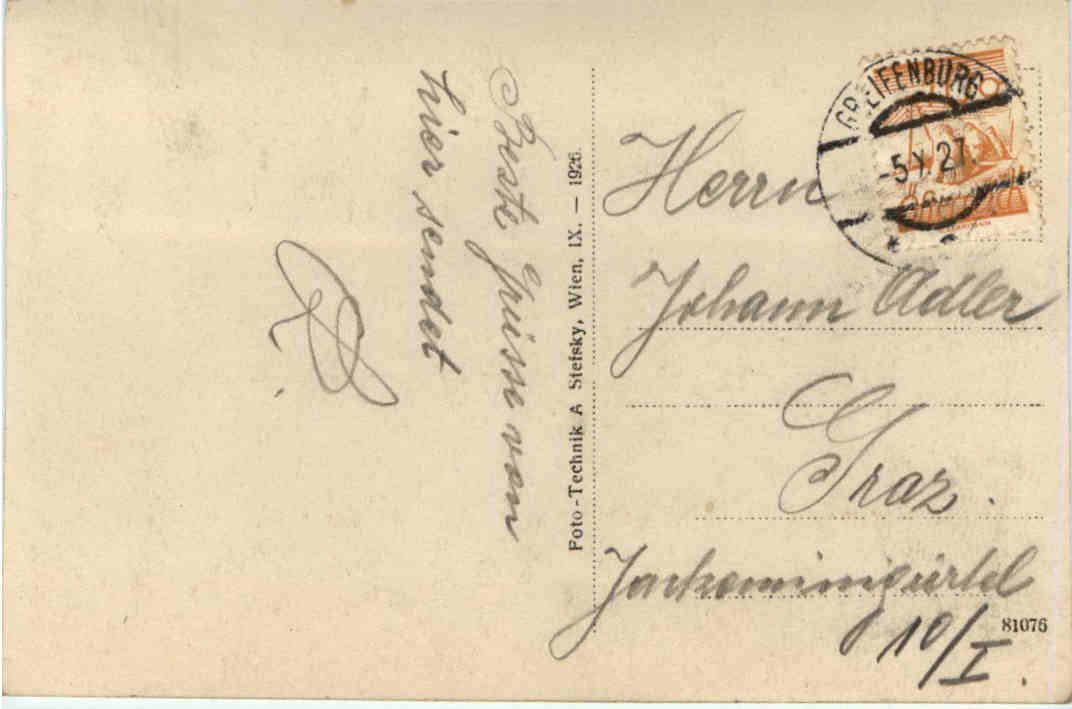 Beste Grüsse von
hier sendet
Poto-Technik A Stefsky, Wien, IX. — 1926.
GREIFENBURG
-5.V.27.
Herrn
Johann Adler
Graz.
Jackominigürtel
10/I.
81076